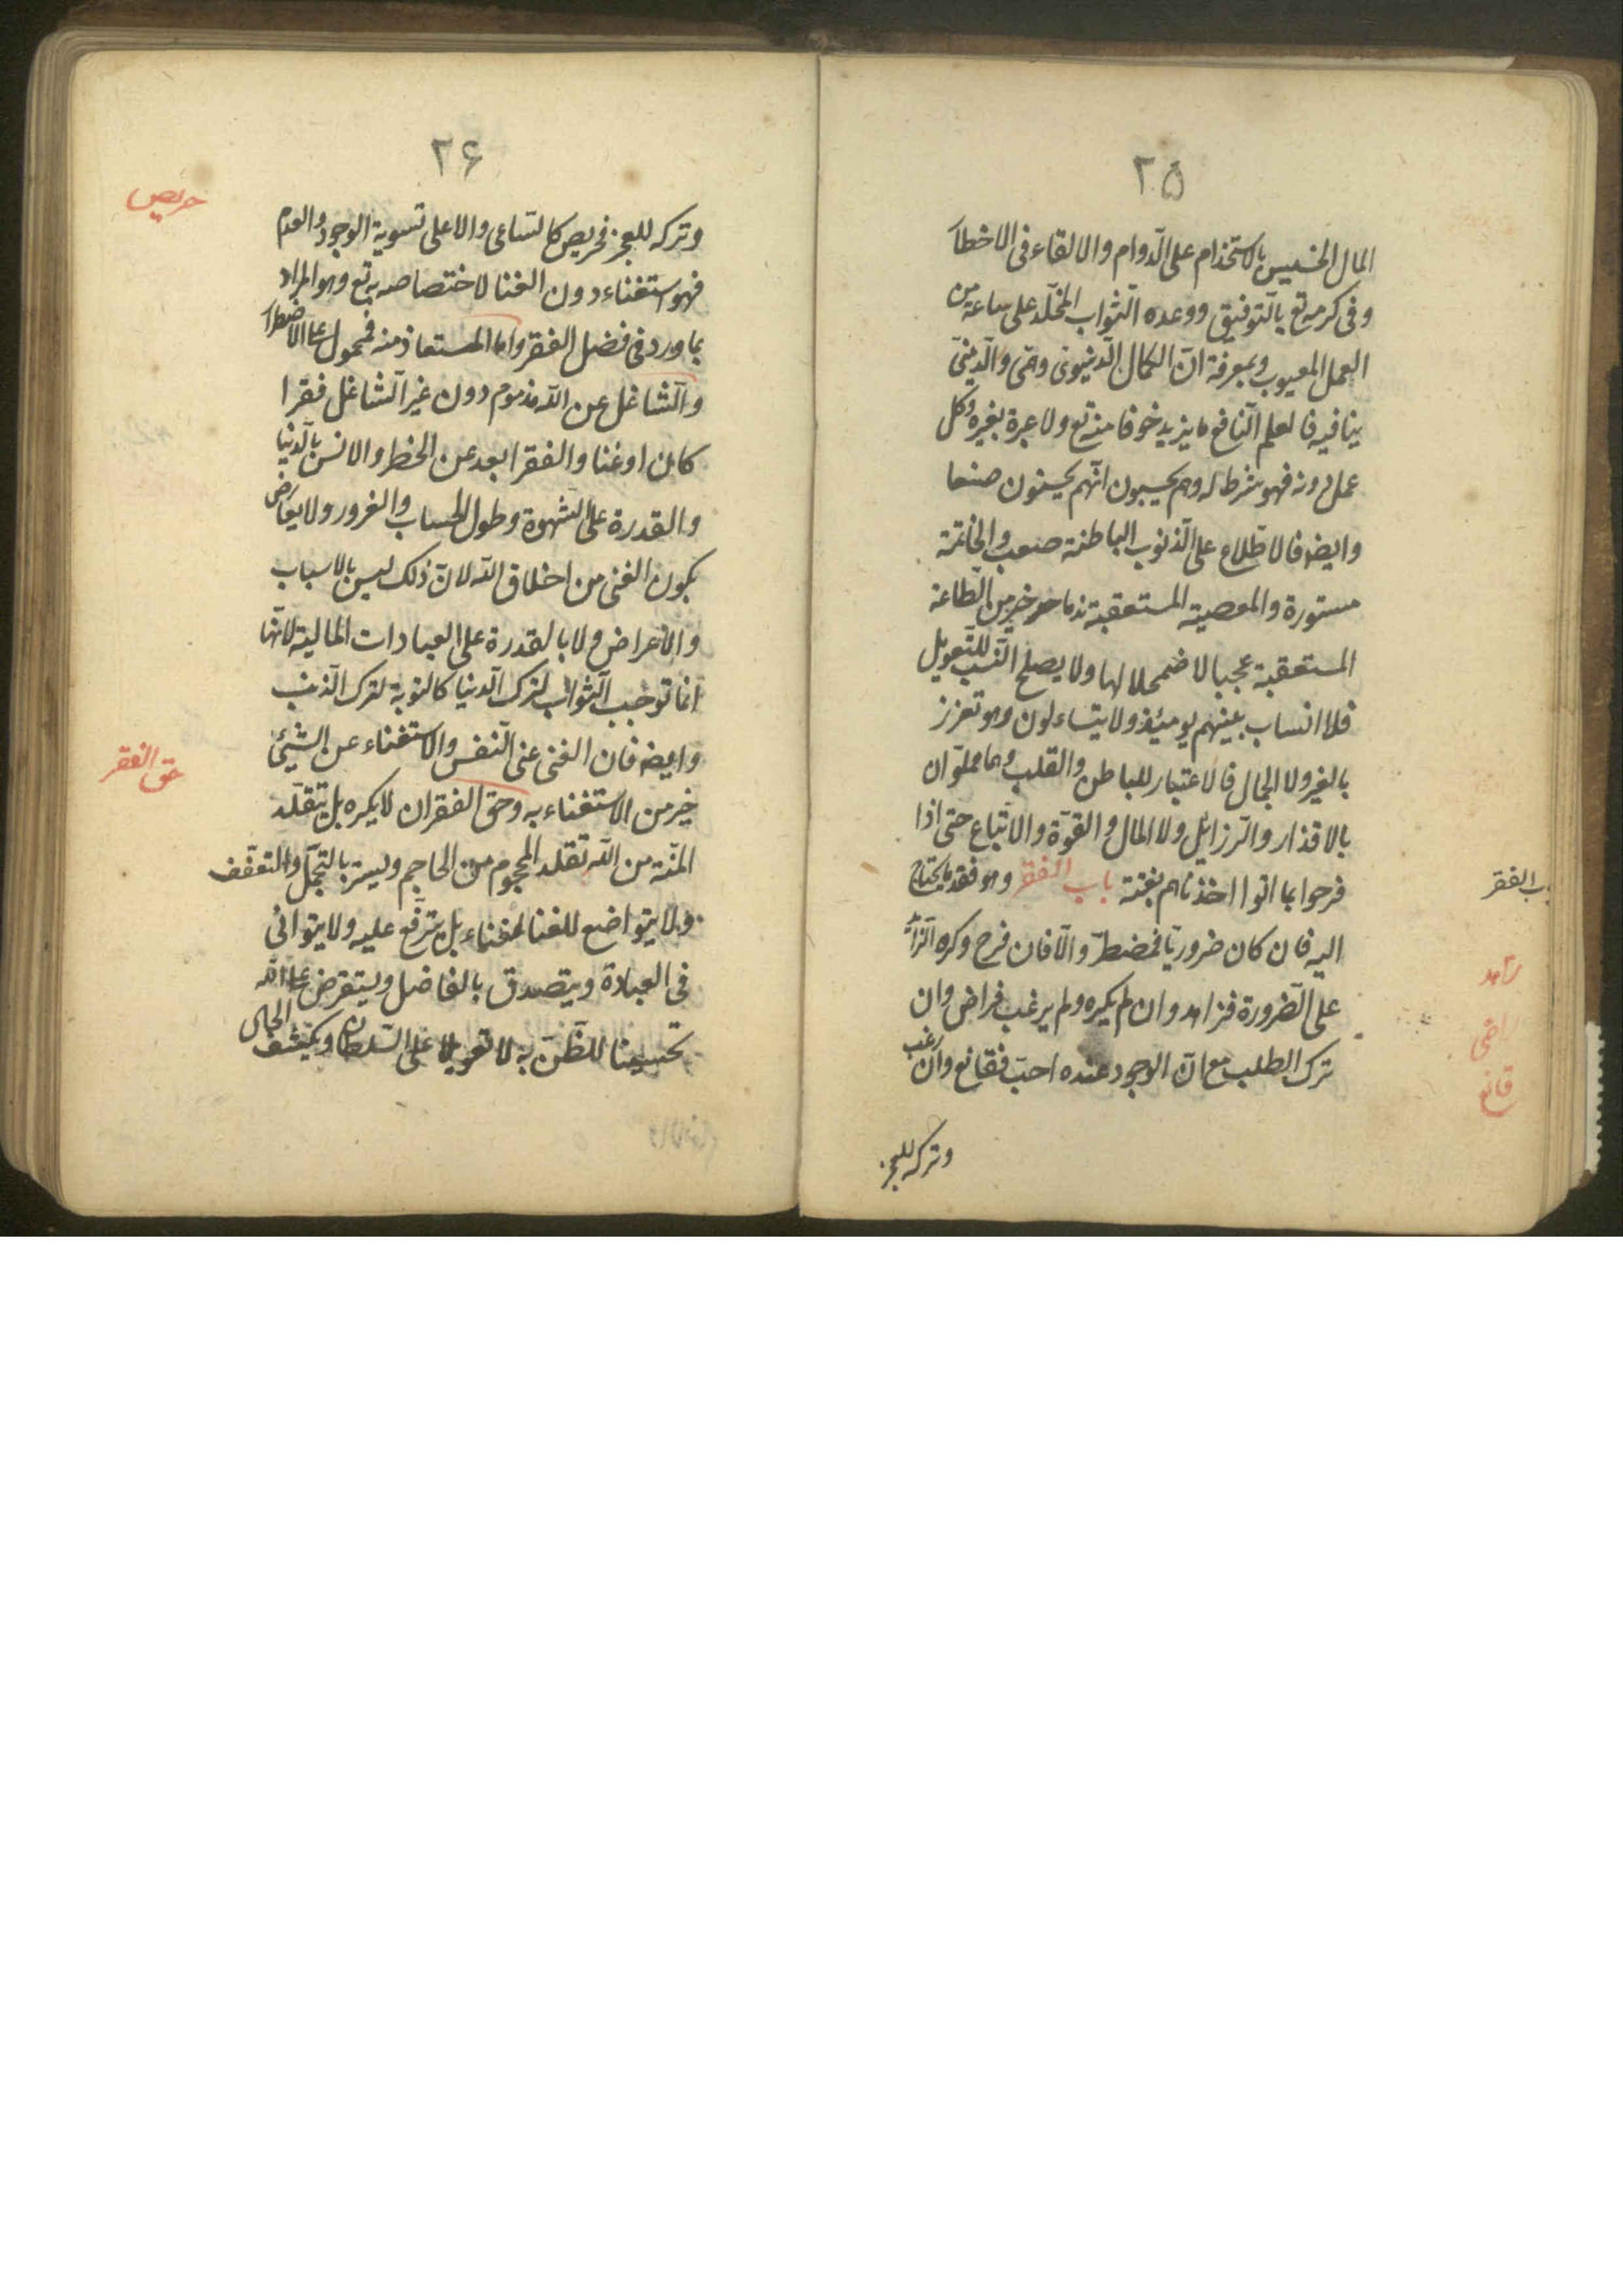 ٢٥
المال الخسيس بالاستخدام على الدوام والالقاء فى الاخطار
وفى كرمه تع بالتوفيق ووعده الثواب المخلّد على ساعة من
العمل المعيوب وبمعرفة انّ الكمال الدنيوىّ وهمى والدينىّ
ينافيه فالعلم النافع ما يزيد خوفا منه تع ولا عبرة بغيره وكل
عمل دونه فهو شرط له وهم يحسبون انّهم يحسنون صنعا
وايضا فالاطّلاع على الذنوب الباطنة صعب والخاتمة
مستورة والمعصية المستعقبة ندما خير من الطاعة
المستعقبة عجبا لاضمحلالها ولا يصلح النسب للتعويل
فلا انساب بينهم يومئذ ولا يتساءلون وهو تعزز
بالغير ولا الجمال فالاعتبار للباطن والقلب وهما مملوّان
بالاقذار والرزائل ولا المال والقوّة والاتباع حتى اذا
فرحوا بما اتوا اخذناهم بغتة باب الفقر وهو فقد ما يحتاج
اليه فان كان ضروريّا فمضطرّ والّا فان فرح وكره الزائد
على الضرورة فزاهد وان لم يكره ولم يرغب فراض وان
ترك الطلب مع انّ الوجود عنده احبّ فقانع وان رغب
وتركه للعجز
باب الفقر
زاهد
راضى
قانع
٢۶
وتركه للعجز فحريص كالساعى والاعلى تسوية الوجود والعدم
فهو استغناء دون الغنا لاختصاصه به تع وهو المراد
بما ورد فى فضل الفقر واما المستعاذ منه فمحمول على الاضطرار
والشاغل عن الله مذموم دون غير الشاغل فقرا
كان او غنا والفقر ابعد عن الخطر والانس بالدنيا
والقدرة على الشهوة وطول الحساب والغرور ولا يعارض
بكون الغنى من اخلاق الله لانّ ذلك ليس بالاسباب
والاعراض ولا بالقدرة على العبادات المالية لانّها
انّما توجب الثواب لترك الدنيا كالتوبة لترك الذنب
وايضا فان الغنى غنى النفس والاستغناء عن الشيئ
خير من الاستغناء به وحق الفقر ان لا يكره بل يتقلّد
المنّة من الله تقلد المحجوم من الحاجم ويستر بالتجمّل والتعفّف
ولا يتواضع للغنا لغناءه بل يترفّع عليه ولا يتوانى
فى العبادة ويتصدق بالفاضل ويستقرض على الله
تحسينا للظنّ به لا تعويلا على السلطان ويكشف الحال
حريص
حق الفقر